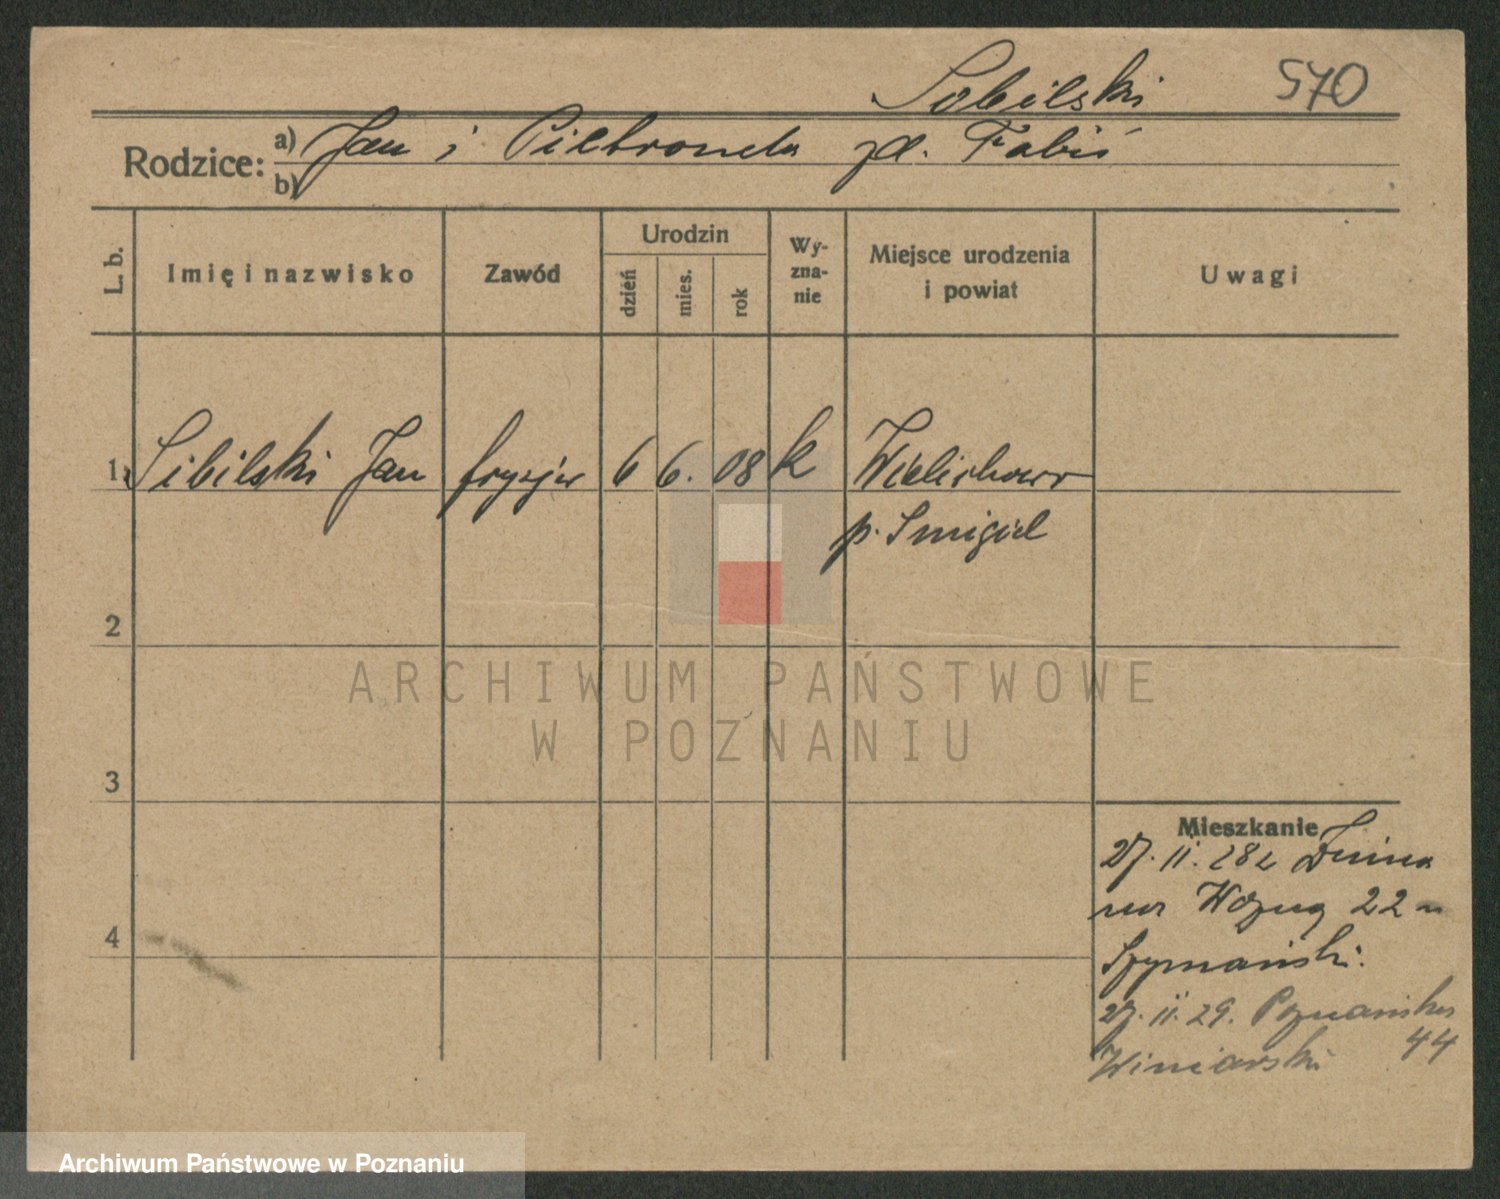 Sobilski 570
Rodzice: a) Jan i Pietronela zd. Fabiś
b)
L. b. Imię i nazwisko Zawód Urodzin dzień mies. rok Wy-zna-nie Miejsce urodzenia i powiat Uwagi
1. Sibilski Jan fryzjer 6 6. 08 k Wielichowo
p. Smigiel
2
ARCHIWUM PAŃSTWOWE
W POZNANIU
3
Mieszkanie
27. II. 28 z
wa 22
4
Szymański.
27. II. 29. Poznańska
Winiarski 44
Archiwum Państwowe w Poznaniu